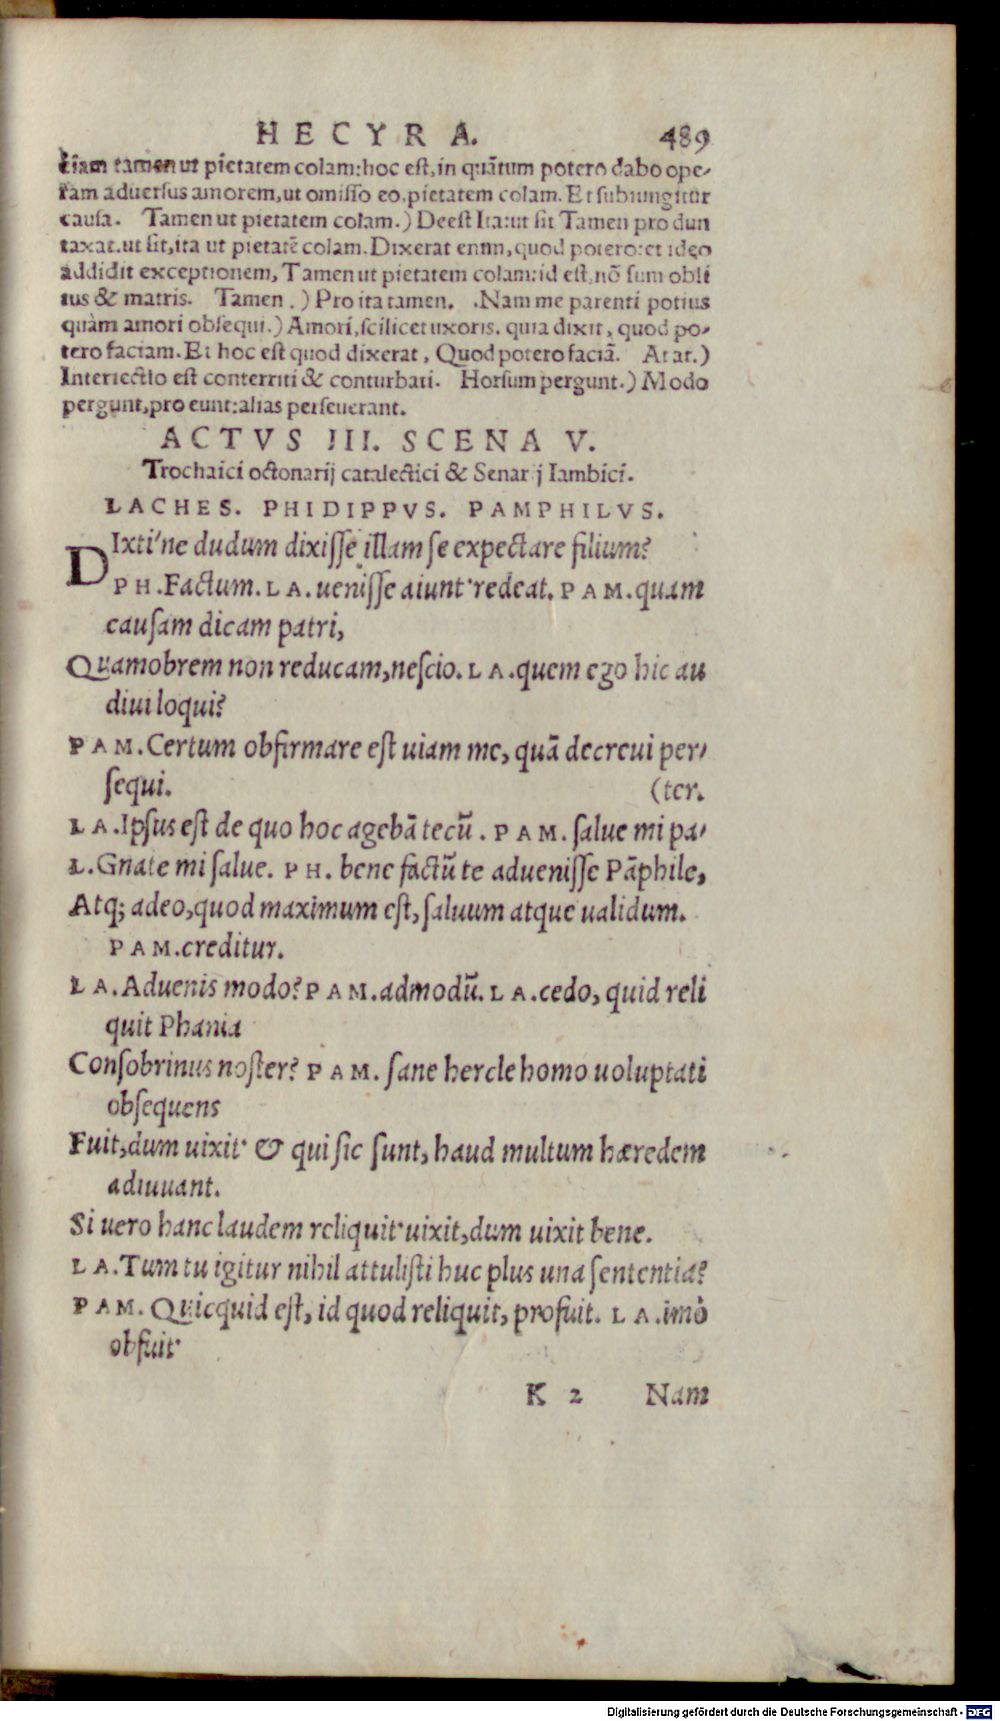 HECYRA. 489
ciam tamen ut pietatem colam:hoc est,in quãtum potero dabo ope-
ram aduersus amorem,ut omisso eo,pietatem colam. Et subiungitur
causa. Tamen ut pietatem colam.) Deest Ita:ut sit Tamen pro dun
taxat.ut sit,ita ut pietatẽ colam. Dixerat enim,quod potero:et ideo
addidit exceptionem, Tamen ut pietatem colam:id est,nõ sum obli
tus & matris. Tamen .) Pro ita tamen. .Nam me parenti potius
quàm amori obsequi.) Amori,scilicet uxoris. quia dixit, quod po-
tero faciam. Et hoc est quod dixerat, Quod potero faciã. At at.)
Interiectio est conterriti & conturbati. Horsum pergunt.) Modo
pergunt,pro eunt:alias perseuerant.
ACTVS III. SCENA V.
Trochaici octonarij catalectici & Senarij Iambici.
LACHES. PHIDIPPVS. PAMPHILVS.
DIxti'ne dudum dixisse illam se expectare filium?
PH.Factum.LA.uenisse aiunt·redeat.PAM.quam
causam dicam patri,
Quamobrem non reducam,nescio.LA.quem ego hic au
diui loqui?
PAM.Certum obfirmare est uiam me, quã decreui per-
sequi. (ter.
LA.Ipsus est de quo hoc agebã tecũ. PAM. salue mi pa-
L.Gnate mi salue. PH. bene factũ te aduenisse Pãphile,
Atq; adeo,quod maximum est, saluum atque ualidum.
PAM.creditur.
LA.Aduenis modo?PAM.admodũ.LA.cedo, quid reli
quit Phania
Consobrinus noster? PAM. sane hercle homo uoluptati
obsequens
Fuit,dum uixit· & qui sic sunt, haud multum hæredem
adiuuant.
Si uero hanc laudem reliquit·uixit,dum uixit bene.
LA.Tum tu igitur nihil attulisti huc plus una sententia?
PAM. Quicquid est, id quod reliquit, profuit. LA.imò
obfuit·
K 2 Nam
Digitalisierung gefördert durch die Deutsche Forschungsgemeinschaft - DFG